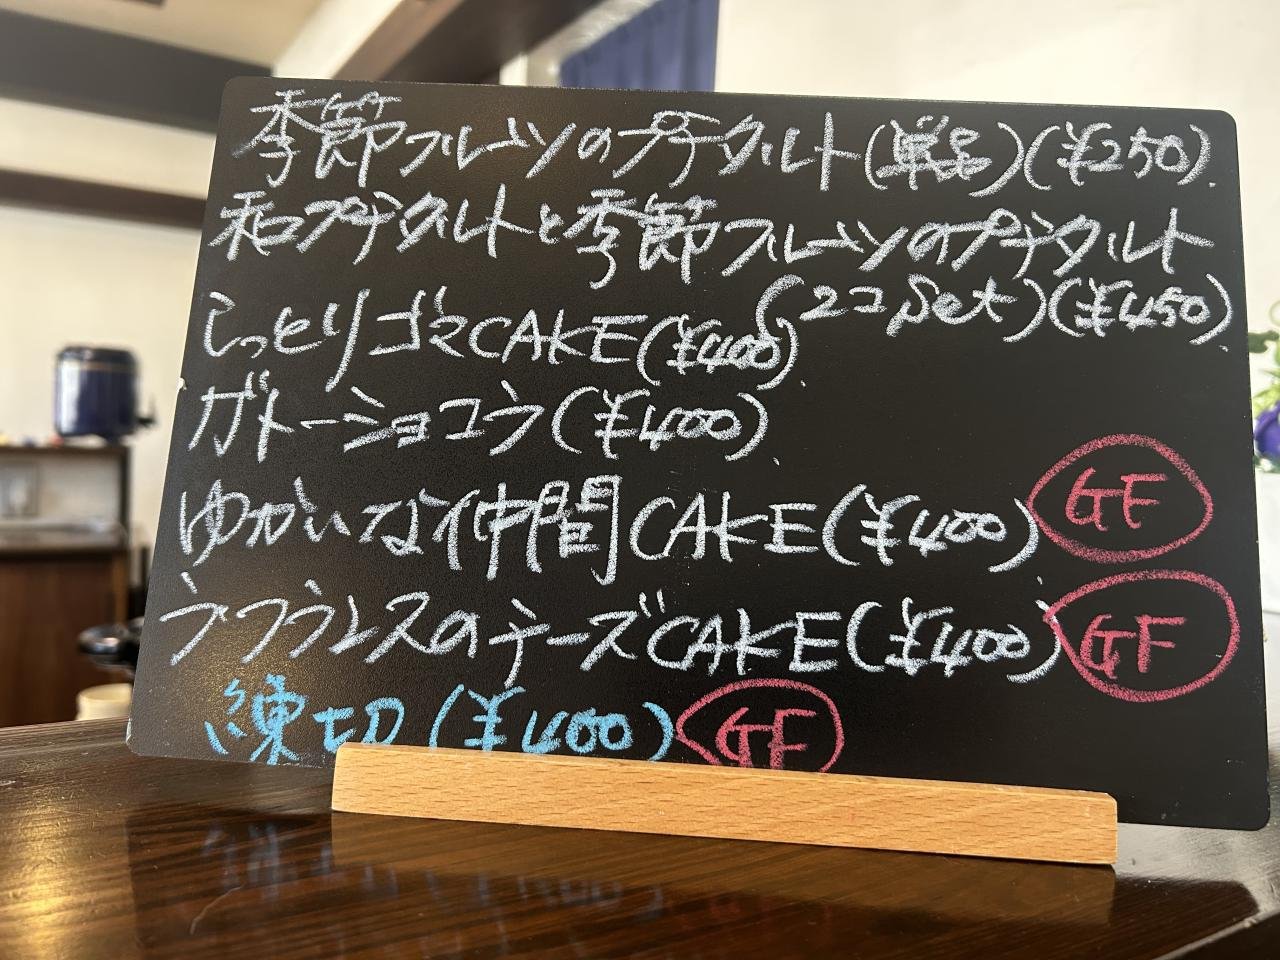 季節フルーツのプチタルト(単品)(¥250)
和プチタルトと季節フルーツのプチタルト
(2コset)(¥450)
しっとりゴマCAKE(¥400)
ガトーショコラ(¥400)
ゆかいな仲間CAKE(¥400) GF
ラフランスのチーズCAKE(¥400) GF
練切(¥400) GF